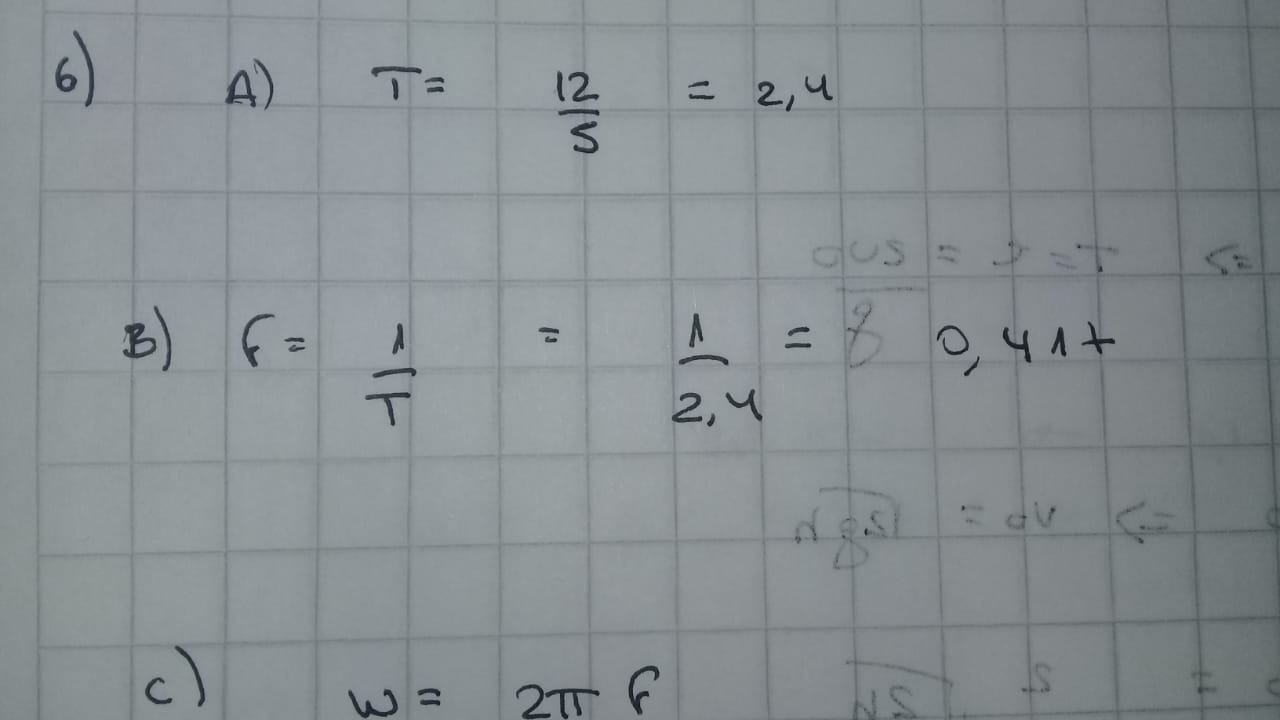 6) A) T = 12/5 = 2,4
B) F = 1/T = 1/2,4 = 0,417
C) W = 2π F